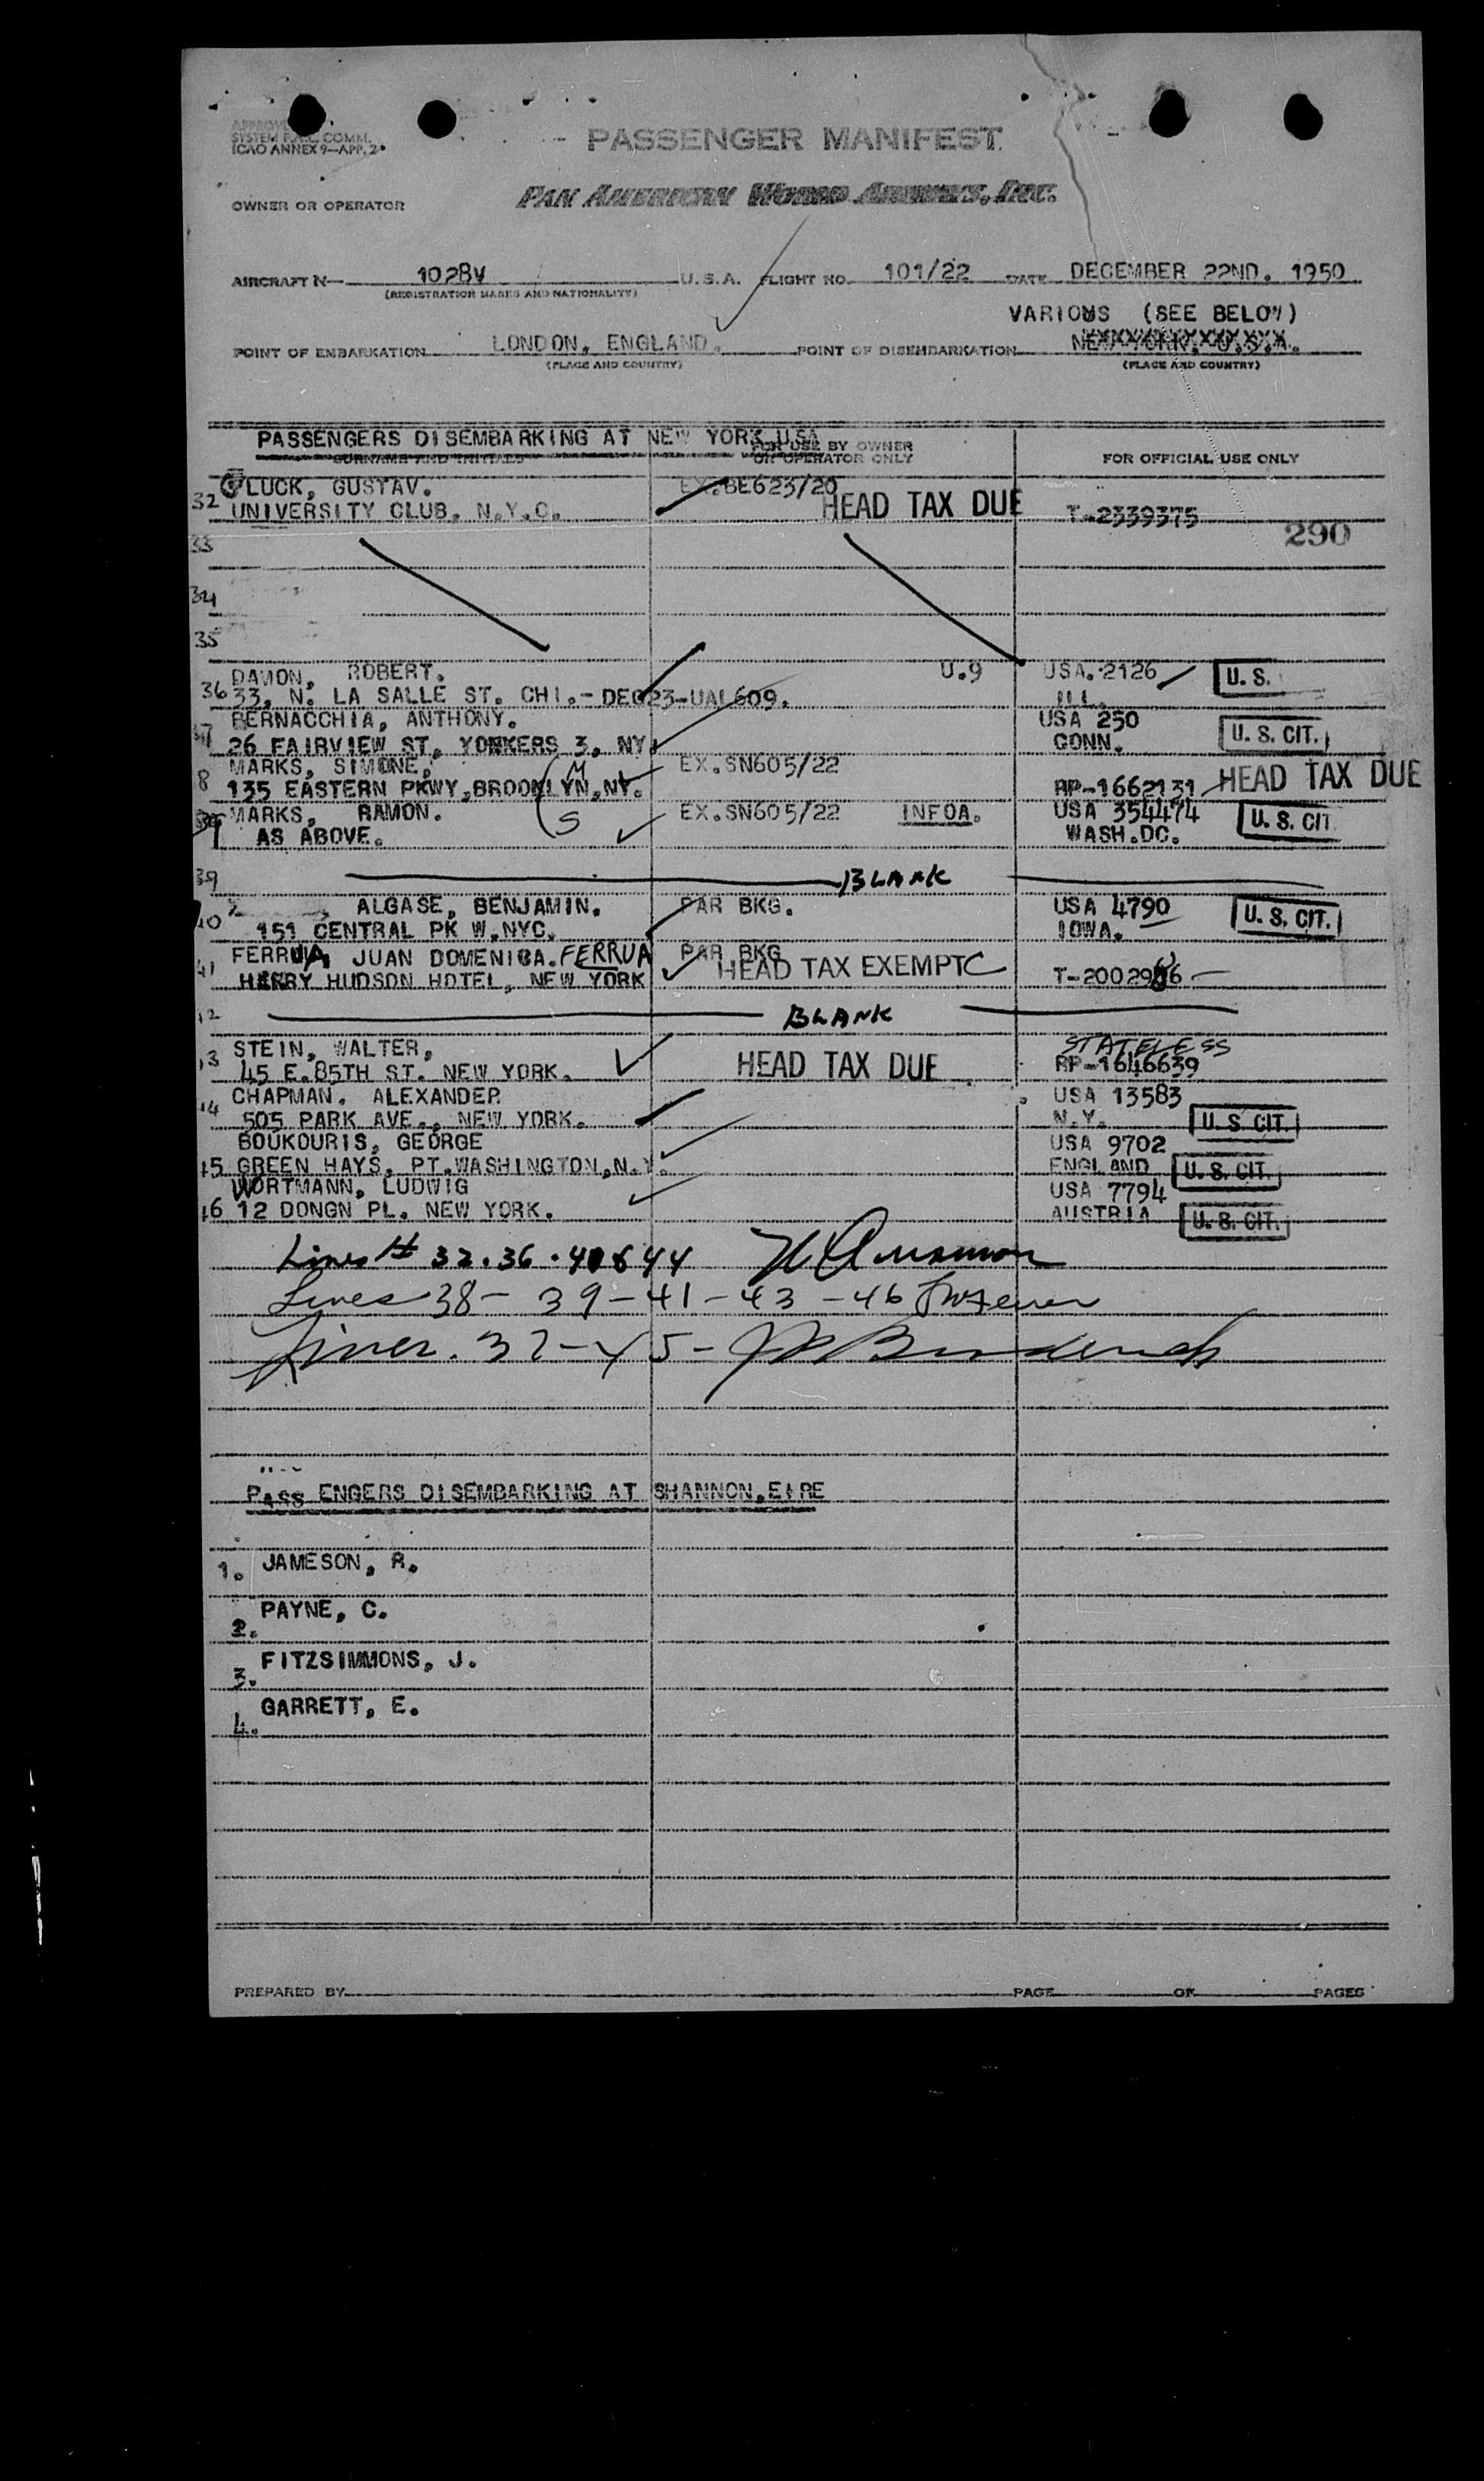 SYSTEM F.A.L. COMM.
ICAO ANNEX 9—APP. 2
PASSENGER MANIFEST
OWNER OR OPERATOR PAN AMERICAN WORLD AIRWAYS, INC.
AIRCRAFT N— 1028V U.S.A. FLIGHT NO. 101/22 DATE DECEMBER 22ND. 1950
(REGISTRATION MARKS AND NATIONALITY)
VARIOUS (SEE BELOW)
POINT OF EMBARKATION LONDON, ENGLAND. POINT OF DISEMBARKATION NEW YORK, U.S.A.
(PLACE AND COUNTRY) (PLACE AND COUNTRY)
PASSENGERS DISEMBARKING AT NEW YORK USA
SURNAME AND INITIALS FOR USE BY OWNER OR OPERATOR ONLY FOR OFFICIAL USE ONLY
GLUCK, GUSTAV. EX.BE623/20
32 UNIVERSITY CLUB, N.Y.C. HEAD TAX DUE T-2339375
290
33
34
35
DAMON, ROBERT. U.9 USA.2126 U.S.
36 33, N. LA SALLE ST. CHI.- DEC23-UAL609. ILL.
BERNACCHIA, ANTHONY. USA 250
37 26 FAIRVIEW ST, YONKERS 3, NY. CONN. U.S. CIT.
MARKS, SIMONE, M EX.SN605/22
8 135 EASTERN PKWY,BROOKLYN,NY. RP-1662131 HEAD TAX DUE
MARKS, RAMON. S EX.SN605/22 INFOA. USA 354474
AS ABOVE. WASH.DC. U.S. CIT
39 BLANK
ALGASE, BENJAMIN. PAR BKG. USA 4790
40 151 CENTRAL PK W.NYC. IOWA. U.S. CIT.
FERRUA, JUAN DOMENICA. FERRUA PAR BKG
41 HERRY HUDSON HOTEL, NEW YORK HEAD TAX EXEMPT C T-2002966
12 BLANK
STEIN, WALTER, STATELESS
13 45 E.85TH ST. NEW YORK. HEAD TAX DUE RP-1646639
CHAPMAN. ALEXANDER USA 13583
14 505 PARK AVE., NEW YORK. N.Y. U.S. CIT.
BOUKOURIS, GEORGE USA 9702
15 GREEN HAYS, PT.WASHINGTON,N.Y. ENGLAND U.S. CIT.
WORTMANN, LUDWIG USA 7794
16 12 DONGN PL. NEW YORK. AUSTRIA U.S. CIT.
Lines # 32.36.40 & 44
Lines 38- 39-41-43-46
Lines. 37-45-
PASSENGERS DISEMBARKING AT SHANNON,EIRE
1. JAMESON, R.
2. PAYNE, C.
3. FITZSIMMONS, J.
4. GARRETT, E.
PREPARED BY PAGE OF PAGES